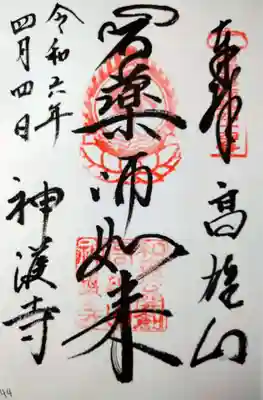 奉拝
高雄山
薬師如来
令和六年
四月四日
神護寺